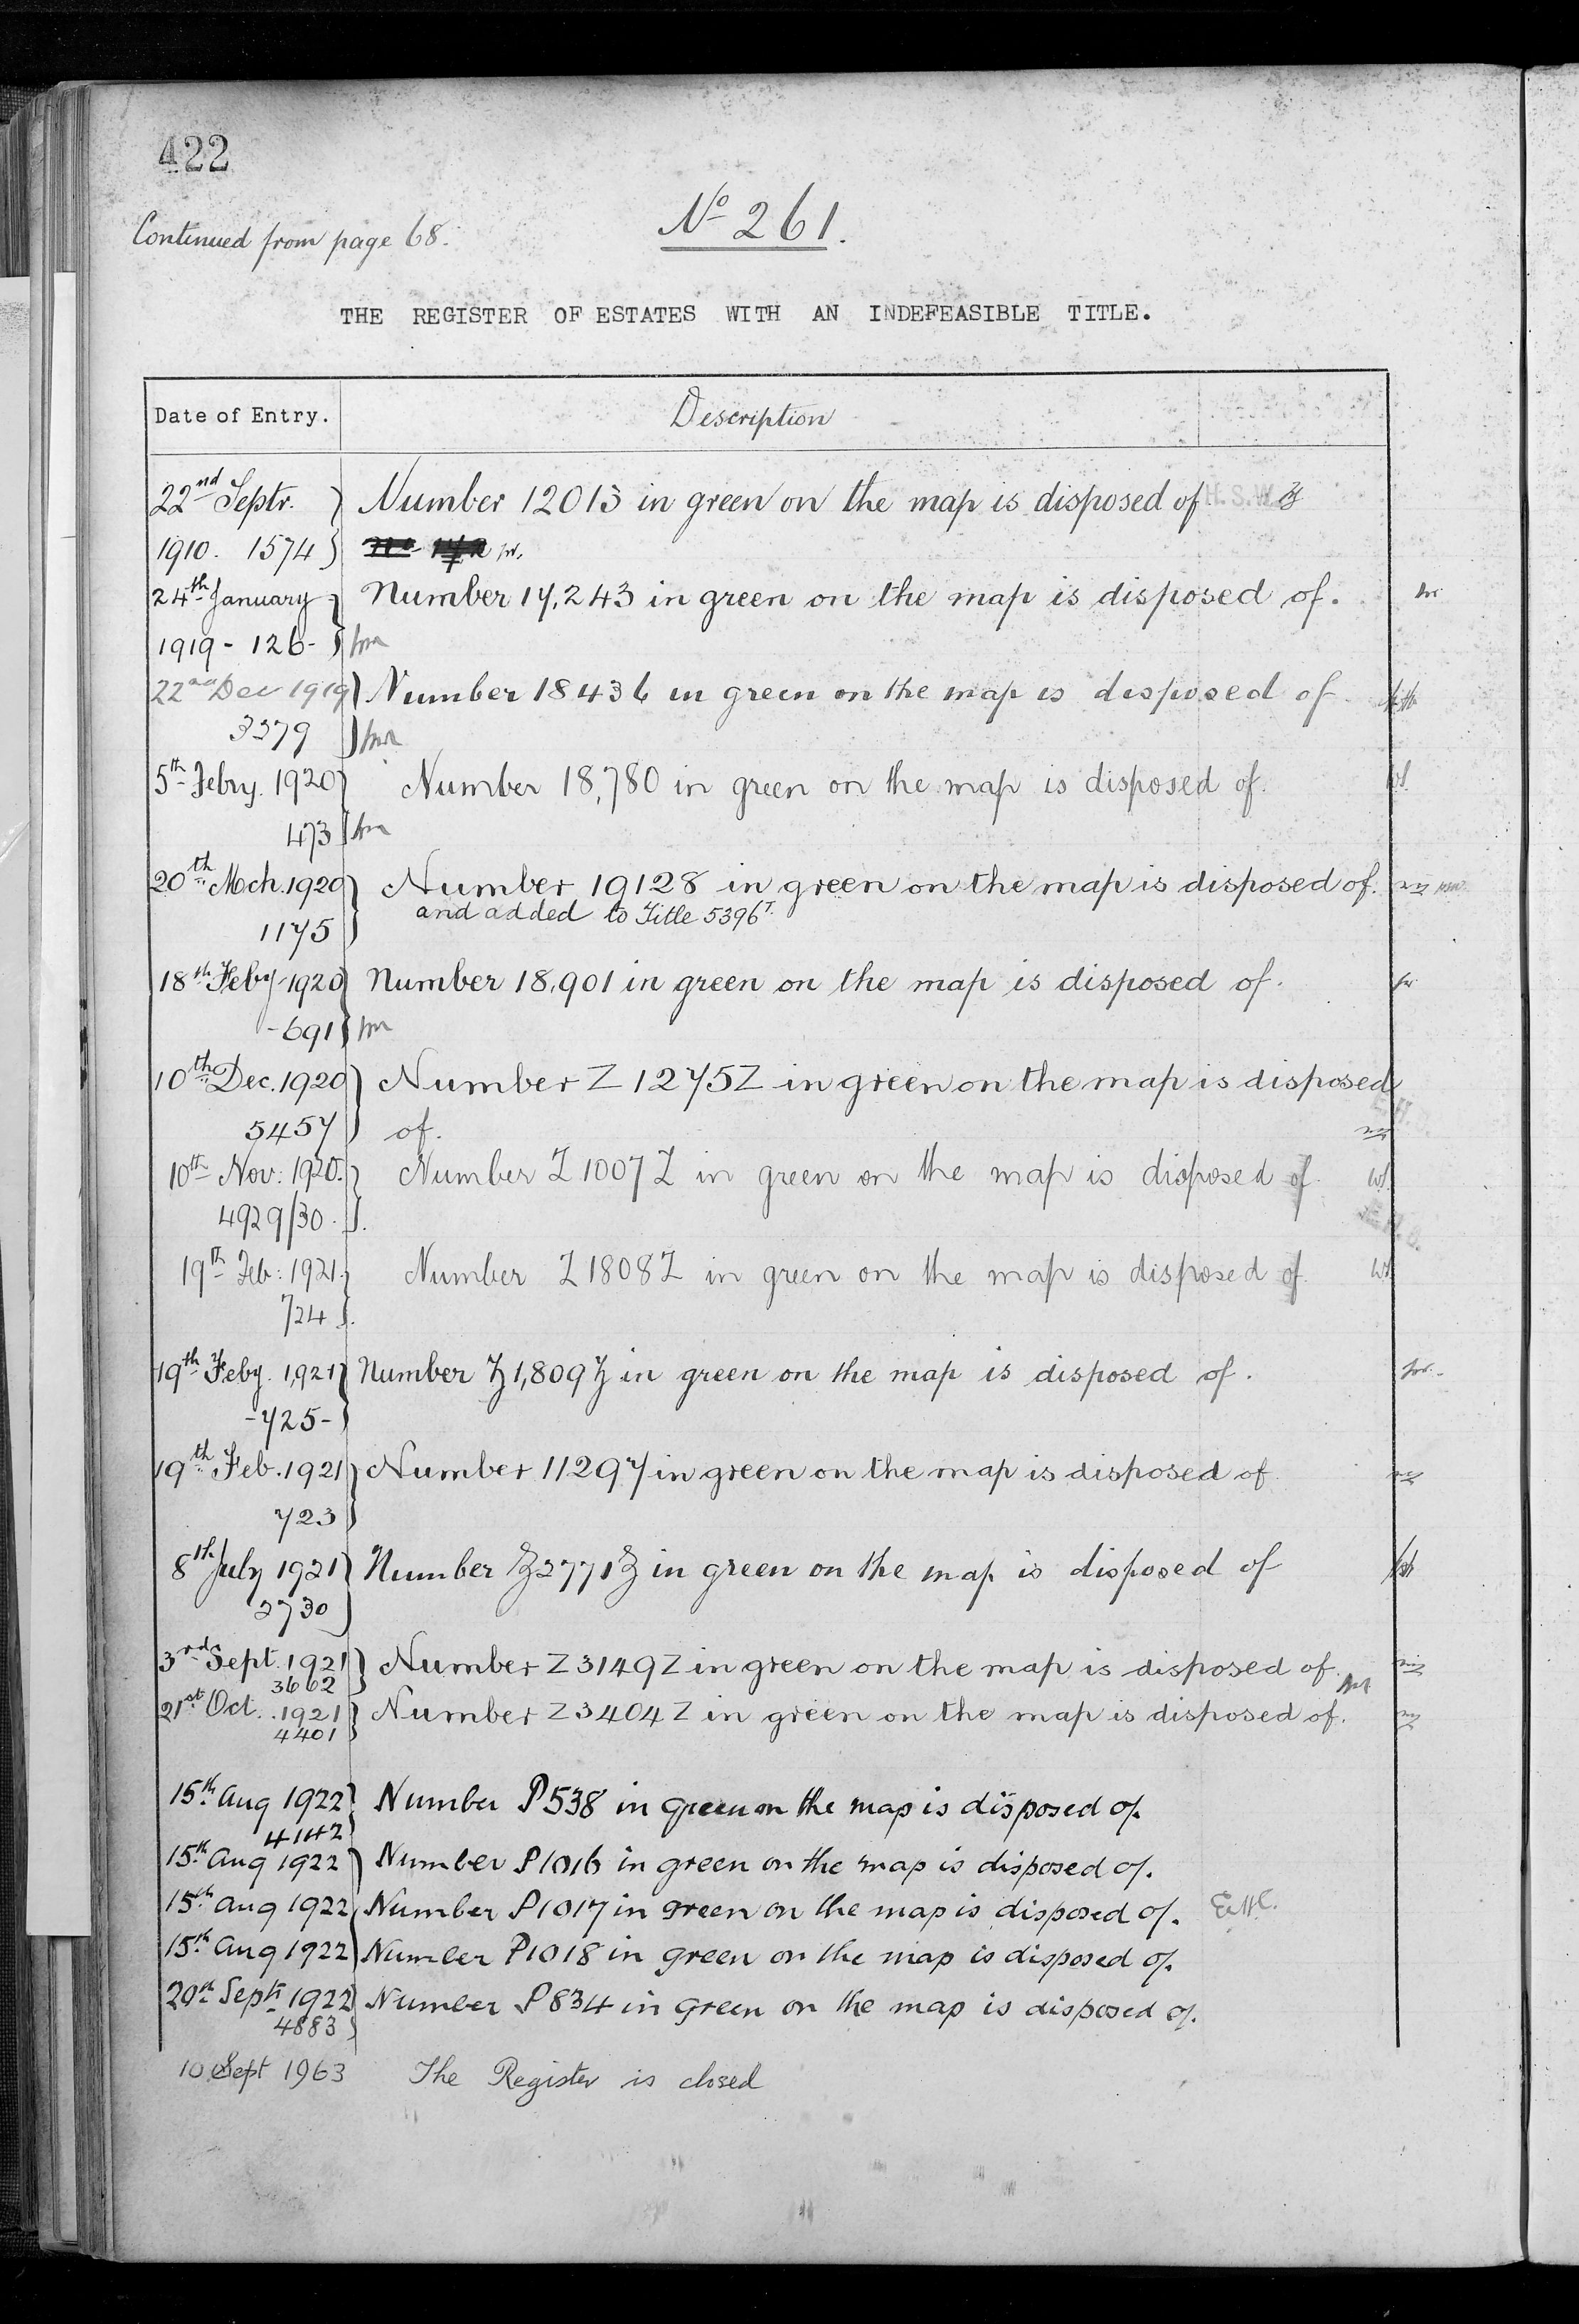 422
Continued from page 68.
No 261.
THE REGISTER OF ESTATES WITH AN INDEFEASIBLE TITLE.
Date of Entry. Description
22nd Septr. Number 12013 in green on the map is disposed of H.S.W.
1910. 1574
24th January Number 17,243 in green on the map is disposed of.
1919 - 126 -
22nd Dec 1919 Number 18436 in green on the map is disposed of
3379
5th Febry. 1920 Number 18,780 in green on the map is disposed of.
473
20th Mch. 1920 Number 19128 in green on the map is disposed of.
and added to Title 5396T.
1175
18th Feby 1920 Number 18,901 in green on the map is disposed of.
- 691
10th Dec. 1920 Number Z 1275Z in green on the map is disposed
5457 of.
10th Nov: 1920. Number Z 1007 Z in green on the map is disposed of.
4929/30.
19th Feb: 1921. Number Z 1808 Z in green on the map is disposed of.
724
19th Feby. 1921 Number Z 1,809 Z in green on the map is disposed of.
- 725 -
19th Feb. 1921 Number 11297 in green on the map is disposed of
723
8th July 1921 Number Z 2771 Z in green on the map is disposed of
2730
3rd Sept. 1921 Number Z 3149 Z in green on the map is disposed of.
3662
21st Oct. 1921 Number Z 3404 Z in green on the map is disposed of.
4401
15th Aug 1922 Number P538 in green on the map is disposed of.
4142
15th Aug 1922 Number P1016 in green on the map is disposed of.
15th Aug 1922 Number P1017 in green on the map is disposed of.
15th Aug 1922 Number P1018 in green on the map is disposed of.
20th Sept 1922 Number P834 in green on the map is disposed of.
4883
10 Sept 1963 The Register is closed